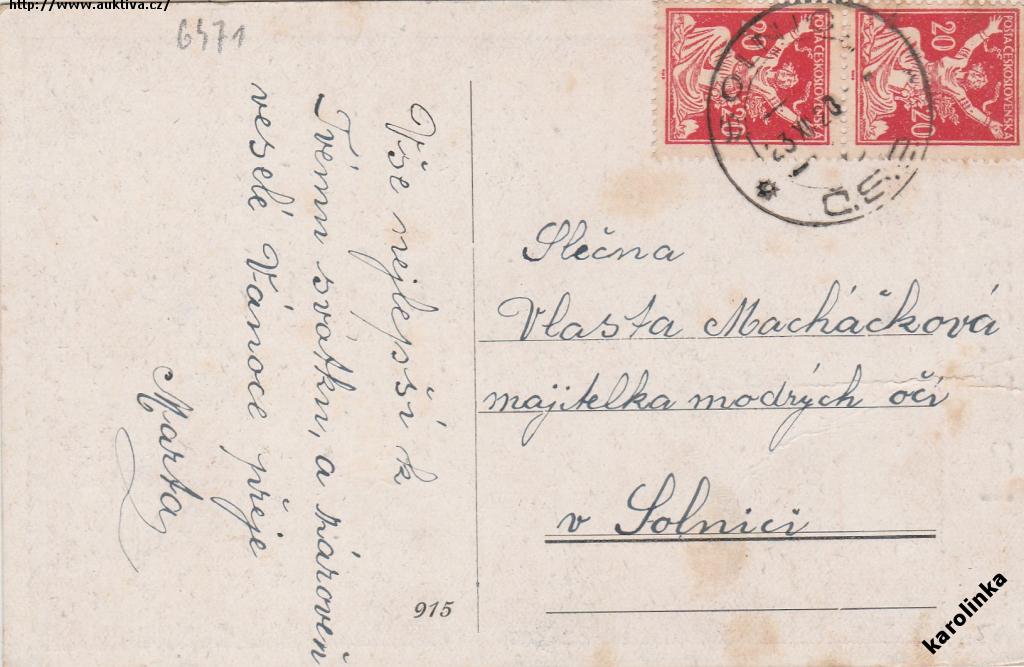 http://www.auktiva.cz/
6471
Vše nejlepší k
Tvému svátku, a zároveň
veselé Vánoce přeje
Marta
915
POŠTA ČESKOSLOVENSKÁ
20
20
POŠTA ČESKOSLOVENSKÁ
20
20
23 XI 23
ČSR
Slečna
Vlasta Macháčková
majitelka modrých očí
v Solnici
karolinka